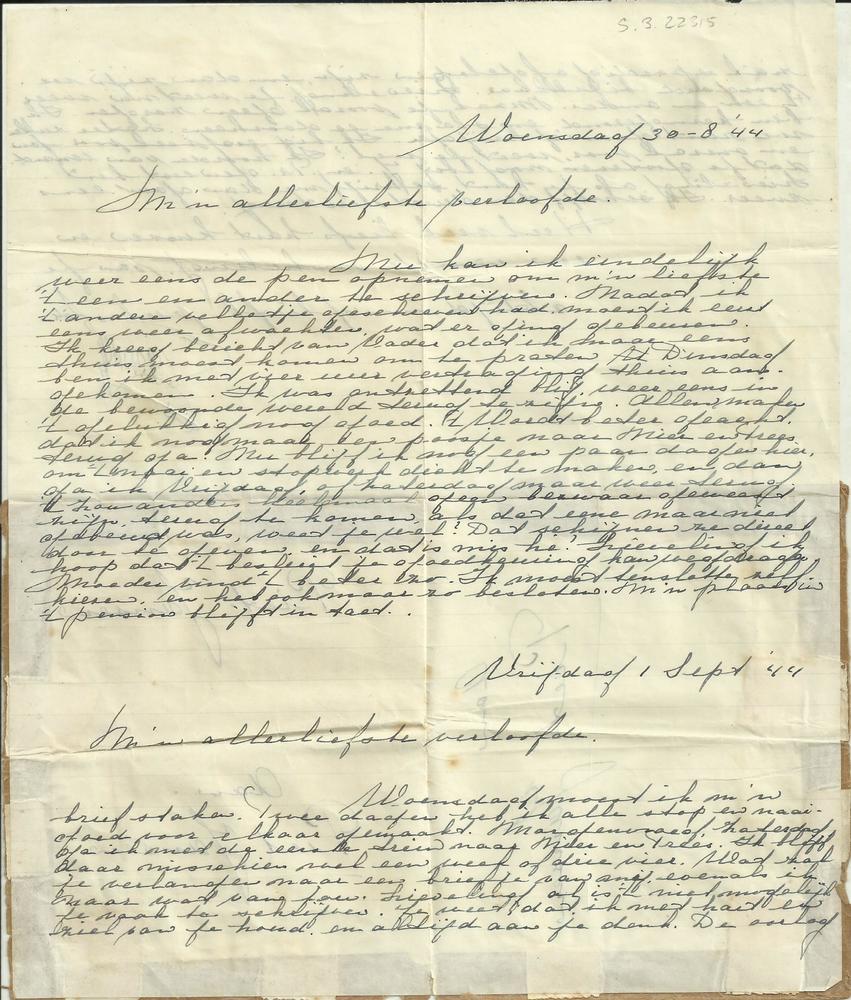 S.3. 22315
Woensdag 30-8 '44
M'n allerliefste verloofde.
Nu kan ik eindelijk
weer eens de pen opnemen om m'n liefste
't een en ander te schrijven. Nadat ik
't andere velletje geschreven had moest ik eerst
eens weer afwachten, wat er ging gebeuren.
Ik kreeg bericht van Vader dat ik maar eens
thuis moest komen om te praten. Dinsdag
ben ik met vier uur vertraging thuis aan-
gekomen. Ik was ontzettend blij, weer eens in
de bewoonde wereld terug te zijn. Allen maken
't gelukkig nog goed. 't Wordt beter geacht,
dat ik nog maar een poosje naar Mier en Trees
terug ga. Nu blijf ik nog een paar dagen hier,
om 't naai en stopwerk dicht te maken, en dan
ga ik Vrijdag, of Zaterdag maar weer terug.
't Zou anders heelemaal geen bezwaar geweest
zijn, terug te komen, als dat eene maar niet
gebeurd was, weet je wel? Dat schijnen ze direct
door te geven, en dat is mis hè! Lieveling ik
hoop dat 't besluit je goedkeuring kan wegdragen.
Moeder vindt 't beter zo. Ik moest tenslotte zelf
kiezen, en heb ook maar zo besloten. M'n plaats in
't pension blijft in tact.
Vrijdag 1 Sept '44
M'n allerliefste verloofde.
Woensdag moest ik m'n
brief staken. Twee dagen heb ik alle stop en naai-
goed voor elkaar gemaakt. Morgenvroeg, Zaterdag
ga ik met de eerste trein naar Mier en Trees. Ik blijf
daar misschien wel een week of drie vier. Wat zal
je verlangen naar een briefje van mij, evenals ik
naar wat van jou. Lieveling, al is 't niet mogelijk
je vaak te schrijven. Je weet, dat ik met hart en
ziel van je houd, en altijd aan je denk. De oorlog